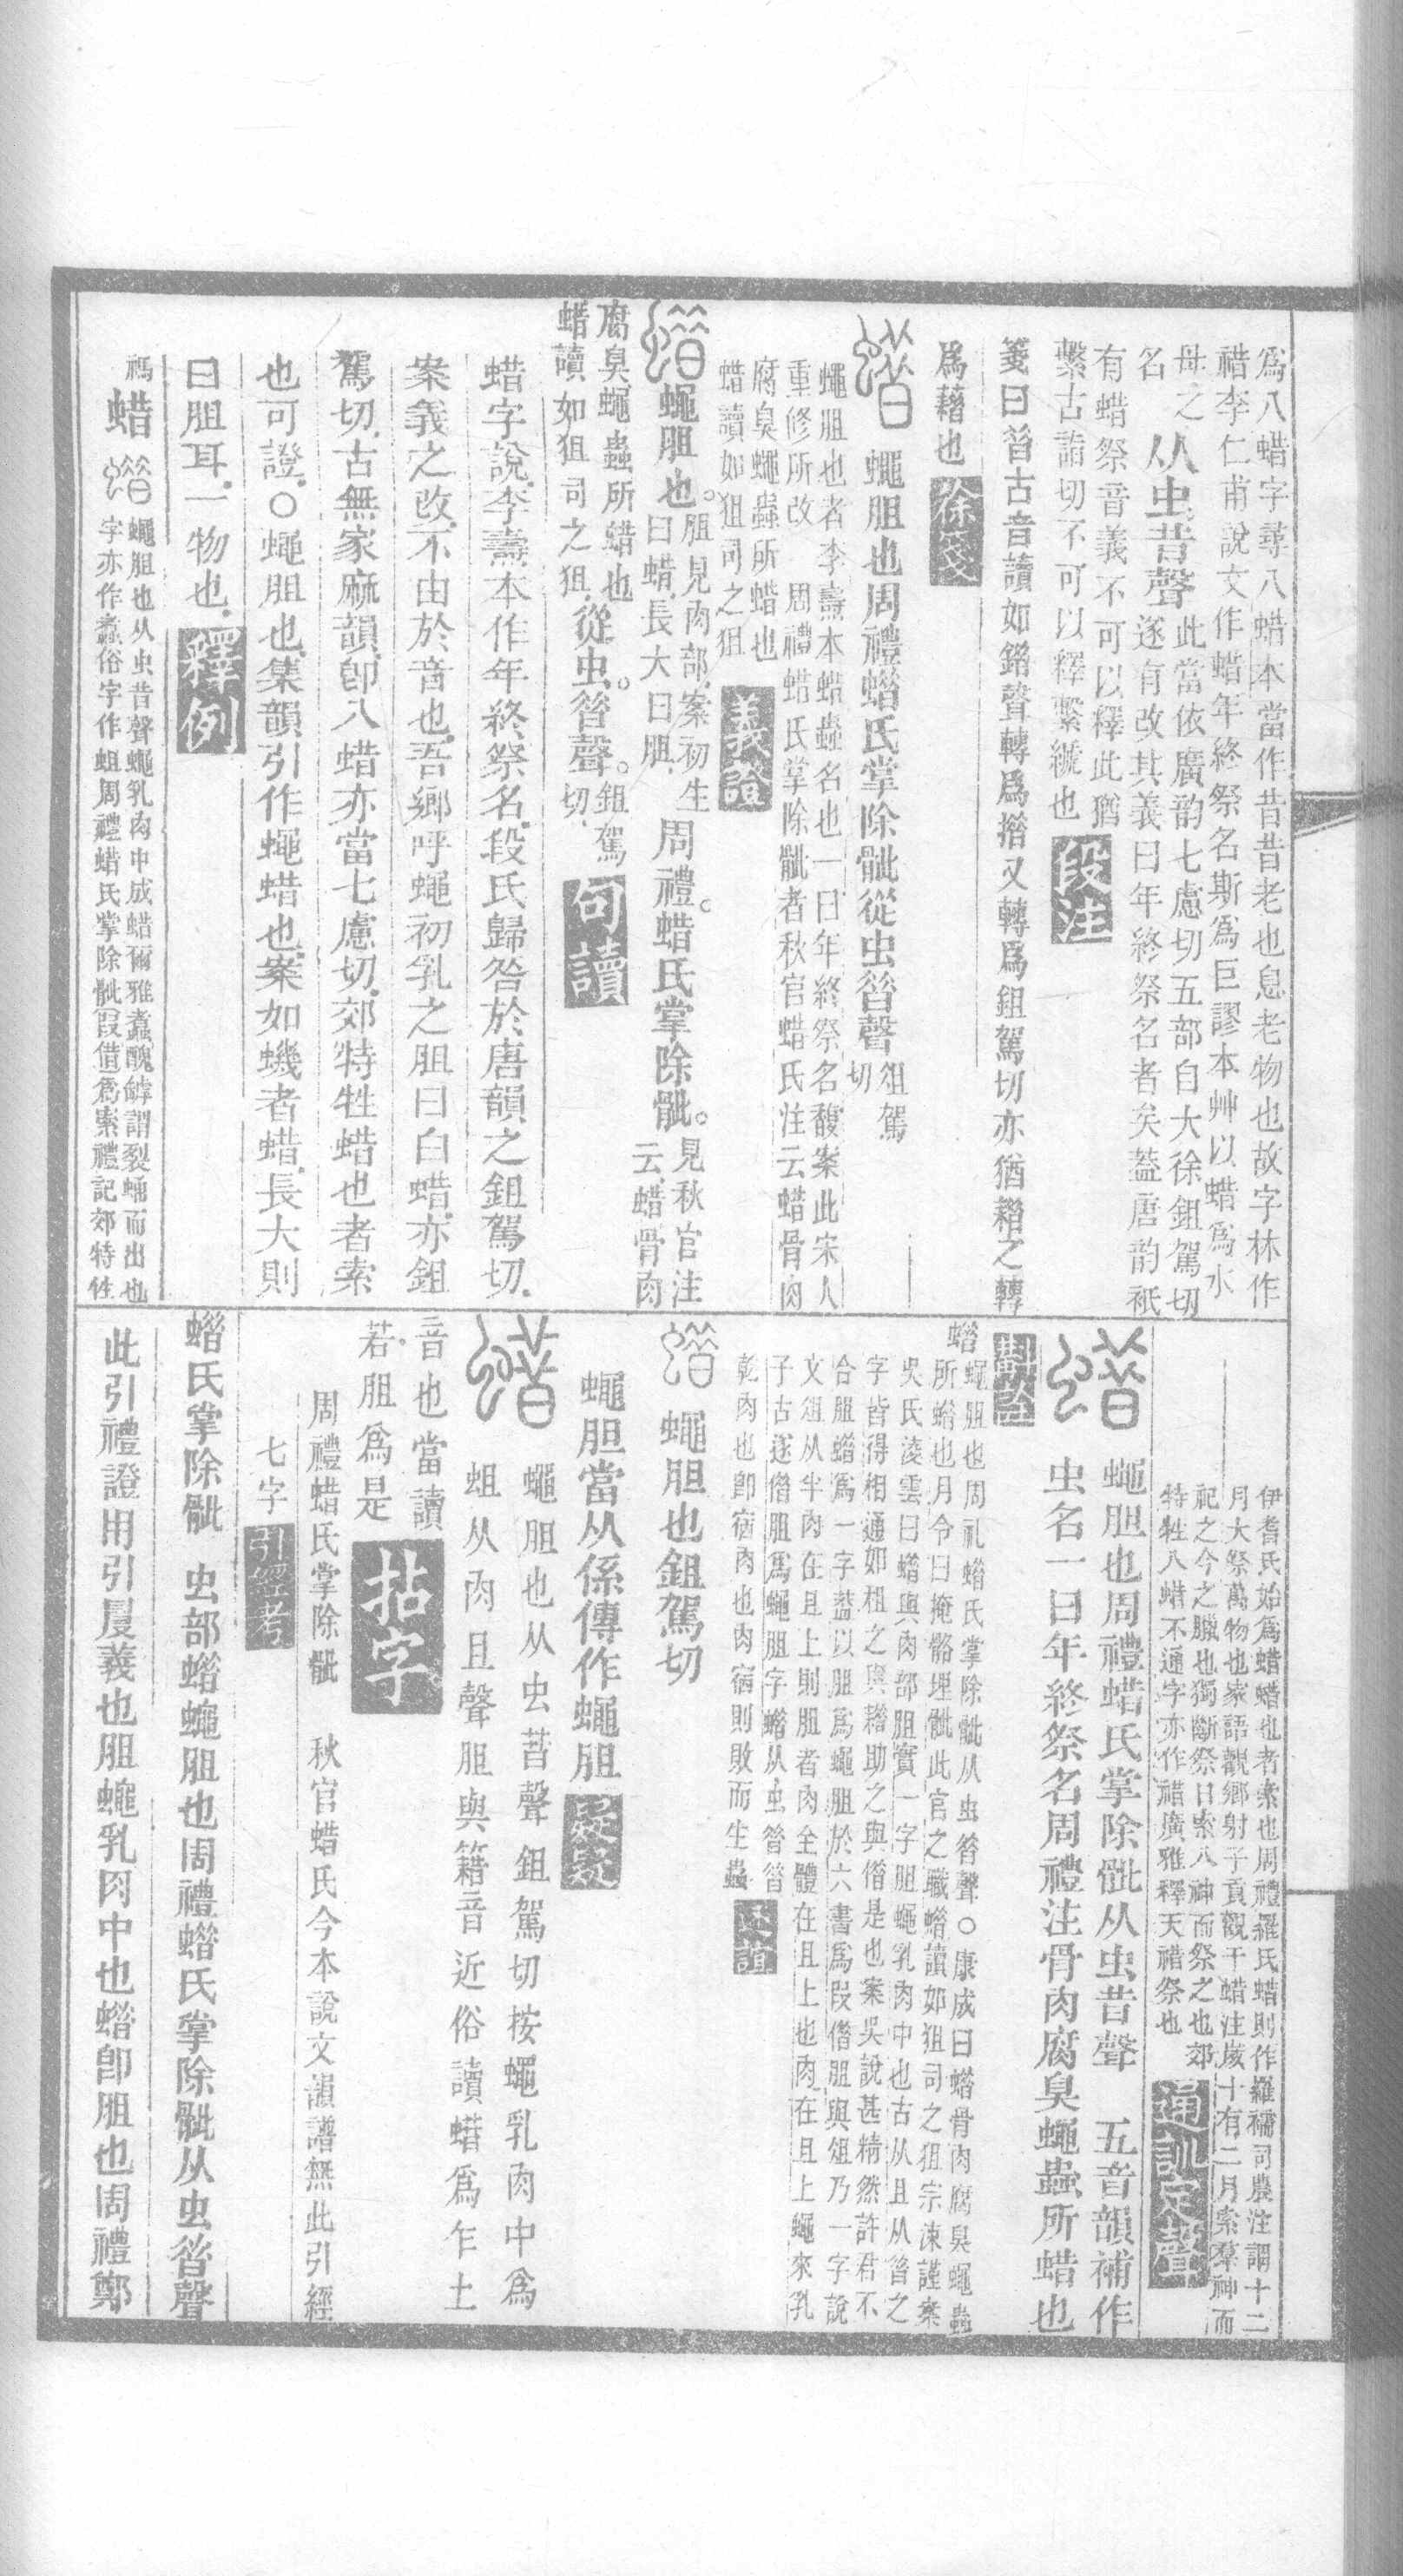 爲八蜡字尋八蜡本當作昔昔老也息老物也故字林作
䄍李仁甫說文作蜡年終祭名斯爲巨謬本艸以蜡爲水
母之
名
从虫昔聲
此當依廣韵七慮切五部自大徐鉏駕切
遂有改其義曰年終祭名者矣葢唐韵衹
有蜡祭音義不可以釋此猶
繫古詣切不可以釋繫䋈也
段注
箋曰㫺古音讀如錯聲轉爲㨋又轉爲鉏駕切亦猶耤之轉
爲藉也
徐箋
蠅胆也周禮蜡氏掌除骴從虫㫺聲
俎駕
切
蠅胆也者李燾本蜡蟲名也一曰年終祭名馥案此宋人
重修所改 周禮蜡氏掌除骴者秋官蜡氏注云蜡骨肉
腐臭蠅蟲所蜡也
蜡讀如狙司之狙
義證
蠅胆也。
胆見肉部案初生
曰蜡長大曰胆
周禮。蜡氏掌除骴。
見秋官注
云蜡骨肉
腐臭蠅蟲所蜡也
蜡讀如狙司之狙
從虫。㫺聲。
鉏駕
切
句讀
蜡字說李燾本作年終祭名段氏歸咎於唐韻之鉏駕切
案義之改不由於音也吾鄉呼蠅初乳之胆曰白蜡亦鉏
駕切古無家麻韻卽八蜡亦當七慮切郊特牲蜡也者索
也可證○蠅胆也集韻引作蠅蜡也案如蟣者蜡長大則
曰胆耳一物也
釋例
禡
蜡
蠅胆也从虫昔聲蠅乳肉中成蜡爾雅蠚醜罅謂裂蛹而出也
字亦作䗩俗字作蛆周禮蜡氏掌除骴叚借爲索禮記郊特牲
伊耆氏始爲蜡蜡也者索也周禮羅氏蜡則作羅襦司農注謂十二
月大祭萬物也家語觀鄉射子貢觀于蜡注歲十有二月索羣神而
祀之今之臘也獨斷祭日索八神而祭之也郊
特牲八蜡不通字亦作䄍廣雅釋天䄍祭也
通訓定聲
蠅胆也周禮蜡氏掌除骴从虫昔聲 五音韻補作
虫名一曰年終祭名周禮注骨肉腐臭蠅蟲所蜡也
蜡
蠅胆也周礼蜡氏掌除骴从虫㫺聲○康成曰蜡骨肉腐臭蠅蟲
所蜡也月令曰掩骼埋骴此官之職蜡讀如狙司之狙宗涑謹案
吳氏淩雲曰蜡與肉部胆實一字胆蠅乳肉中也古从且从㫺之
字皆得相通如租之與耤助之與借是也案吳說甚精然許君不
合胆蜡爲一字葢以胆爲蠅胆於六書爲叚借胆與俎乃一字說
文俎从半肉在且上則胆者肉全體在且上也肉在且上蠅來乳
子古遂借胆爲蠅胆字蜡从虫㫺㫺
乾肉也卽宿肉也肉宿則敗而生蟲
蠅胆也鉏駕切
蠅胆當从係傳作蠅胆
蠅胆也从虫㫺聲鉏駕切按蠅乳肉中爲
蛆从肉且聲胆與籍音近俗讀蜡爲乍土
音也當讀
若胆爲是
拈字
周禮蜡氏掌除骴 秋官蜡氏今本說文韻譜無此引經
七字
引經考
蜡氏掌除骴 虫部蜡蠅胆也周禮蜡氏掌除骴从虫㫺聲
此引禮證用引㞡義也胆蠅乳肉中也蜡卽胆也周禮鄭